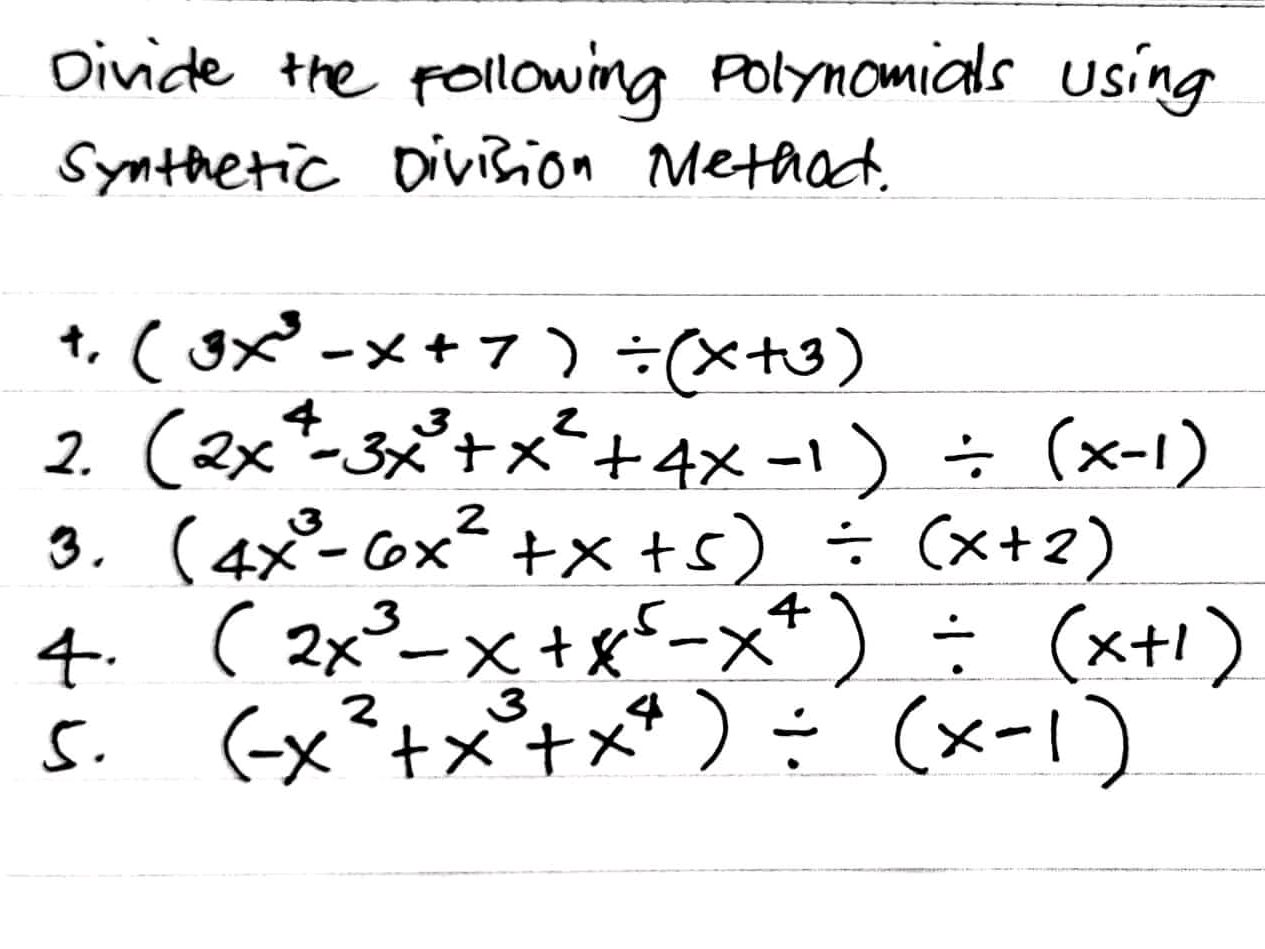 Divide the Following Polynomials Using
Synthetic Division Method.
1. (3x³ - x + 7) ÷ (x+3)
2. (2x⁴ - 3x³ + x² + 4x - 1) ÷ (x-1)
3. (4x³ - 6x² + x + 5) ÷ (x+2)
4. (2x³ - x + x⁵ - x⁴) ÷ (x+1)
5. (-x² + x³ + x⁴) ÷ (x-1)